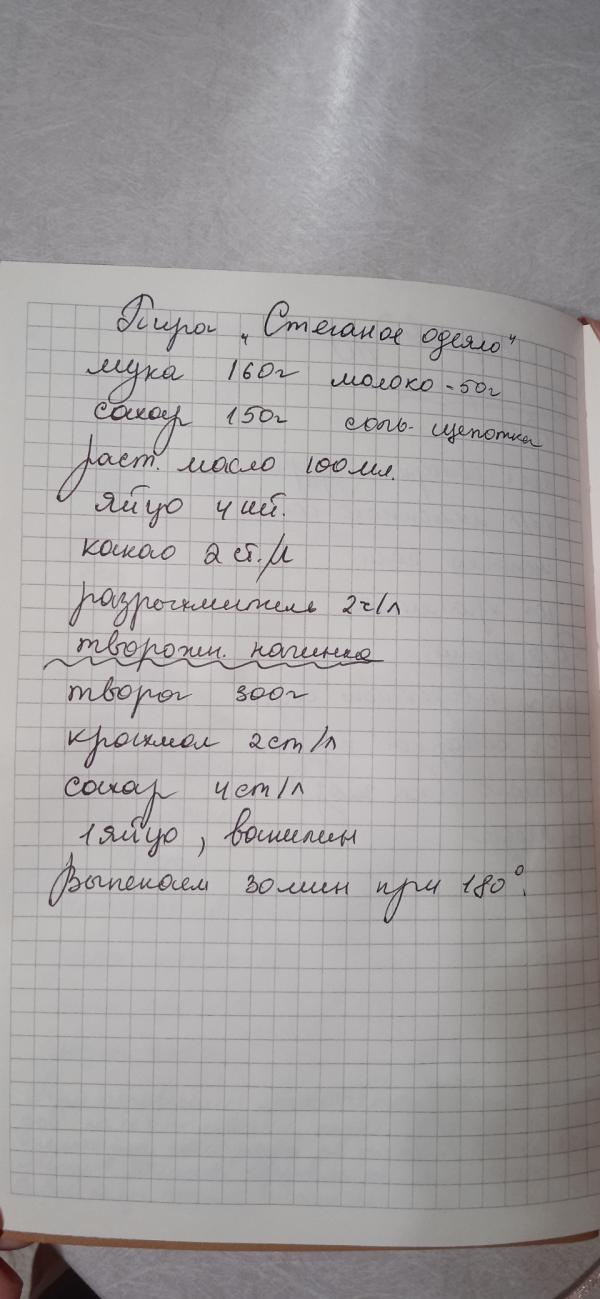 Пирог „Стеганое одеяло"
мука 160г молоко - 50г
сахар 150г соль - щепотка
раст. масло 100мл.
яйцо 4 шт.
какао 2 ст./л
разрыхлитель 2ч/л
творожн. начинка
творог 300г
крахмал 2ст/л
сахар 4ст/л
1 яйцо, ванилин
Выпекаем 30 мин при 180°.